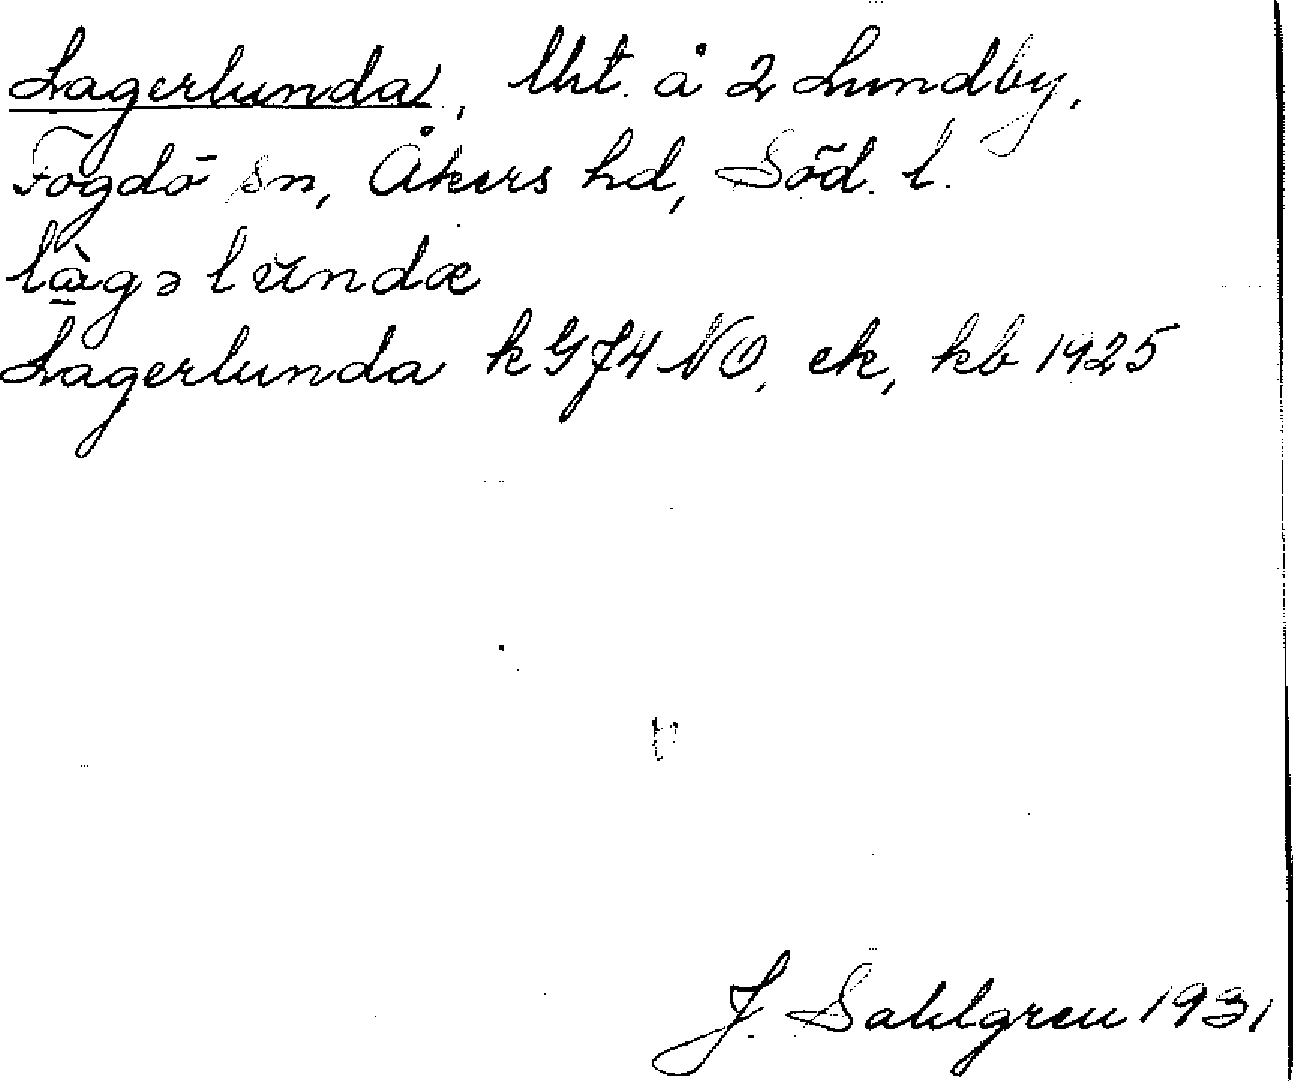 Lagerlunda, lht. å 2 Lundby,
Fogdö sn, Åkers hd, Söd. l.
làgəlŭndæ
Lagerlunda k G J4 NO, ek, kb 1925
J. Sahlgren 1931